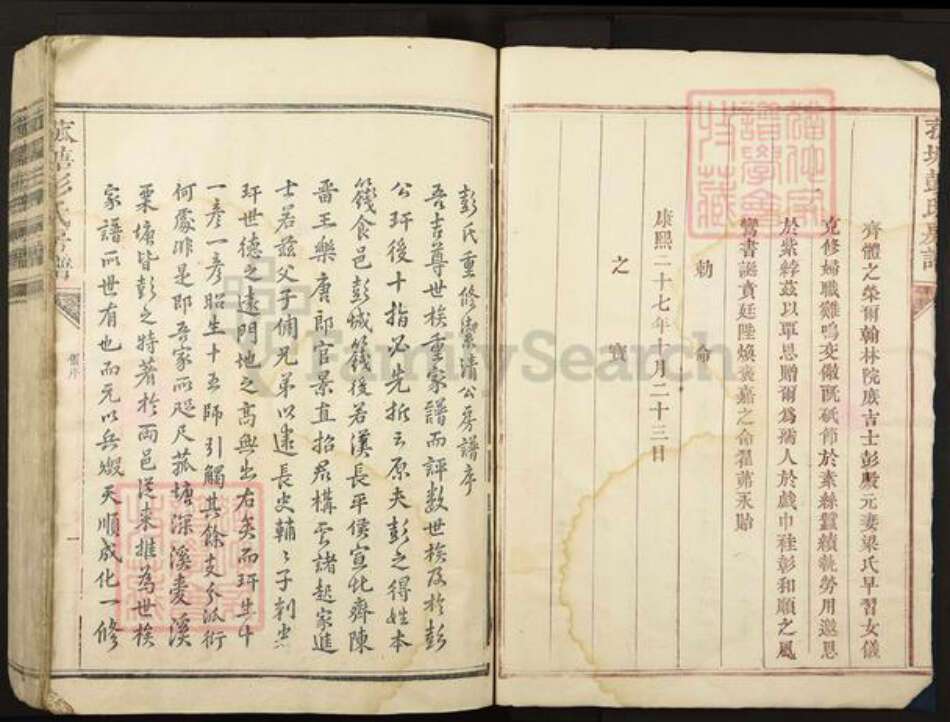 齊體之榮爾翰林院庶吉士彭殿元妻梁氏早習女儀
克修婦職雞鳴交儆旣砥節於素絲蠶績執勞用邀恩
於紫綍茲以覃恩贈爾爲孺人於戲巾袿彰和順之風
鸞書誕賁廷陛煥褒嘉之命翟茀永貽
勅命
康熙二十七年十月二十三日
之寶
彭氏重修潔清公房譜序
吾吉尊世族重家譜而評數世族及於彭
公玕後十指必先推云原夫彭之得姓本
籛食邑彭城籛後若漢長平侯宣仕齊陳
晉王樂唐郎官景直招君構雲諸起家進
士若茲父子倘兄弟以逮長史輔輔子刺史
玕世德之遠門地之高無出右矣而玕生
一彥一彥昭生十五師引觸其餘支分派衍
何處非是即吾家而咫尺菰塘深溪麥溪
栗塘皆彭之特著於兩邑從來推為世族
家譜所世有也而元以兵燬天順成化一修
彭氏房譜
舊序
一
FamilySearch